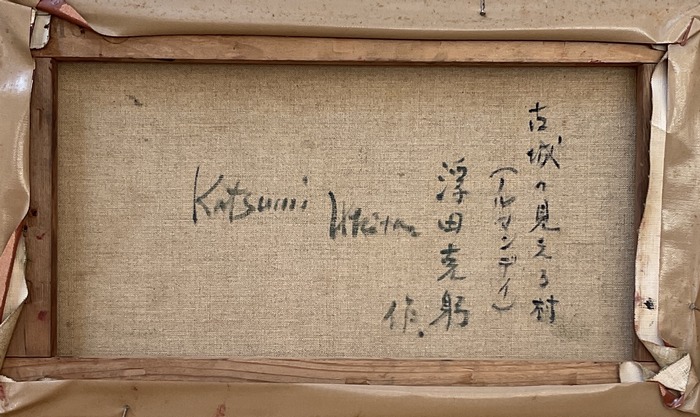 古城の見える村
(アルカンディイ)
浮田克躬
作.
Katsumi
Ukita.